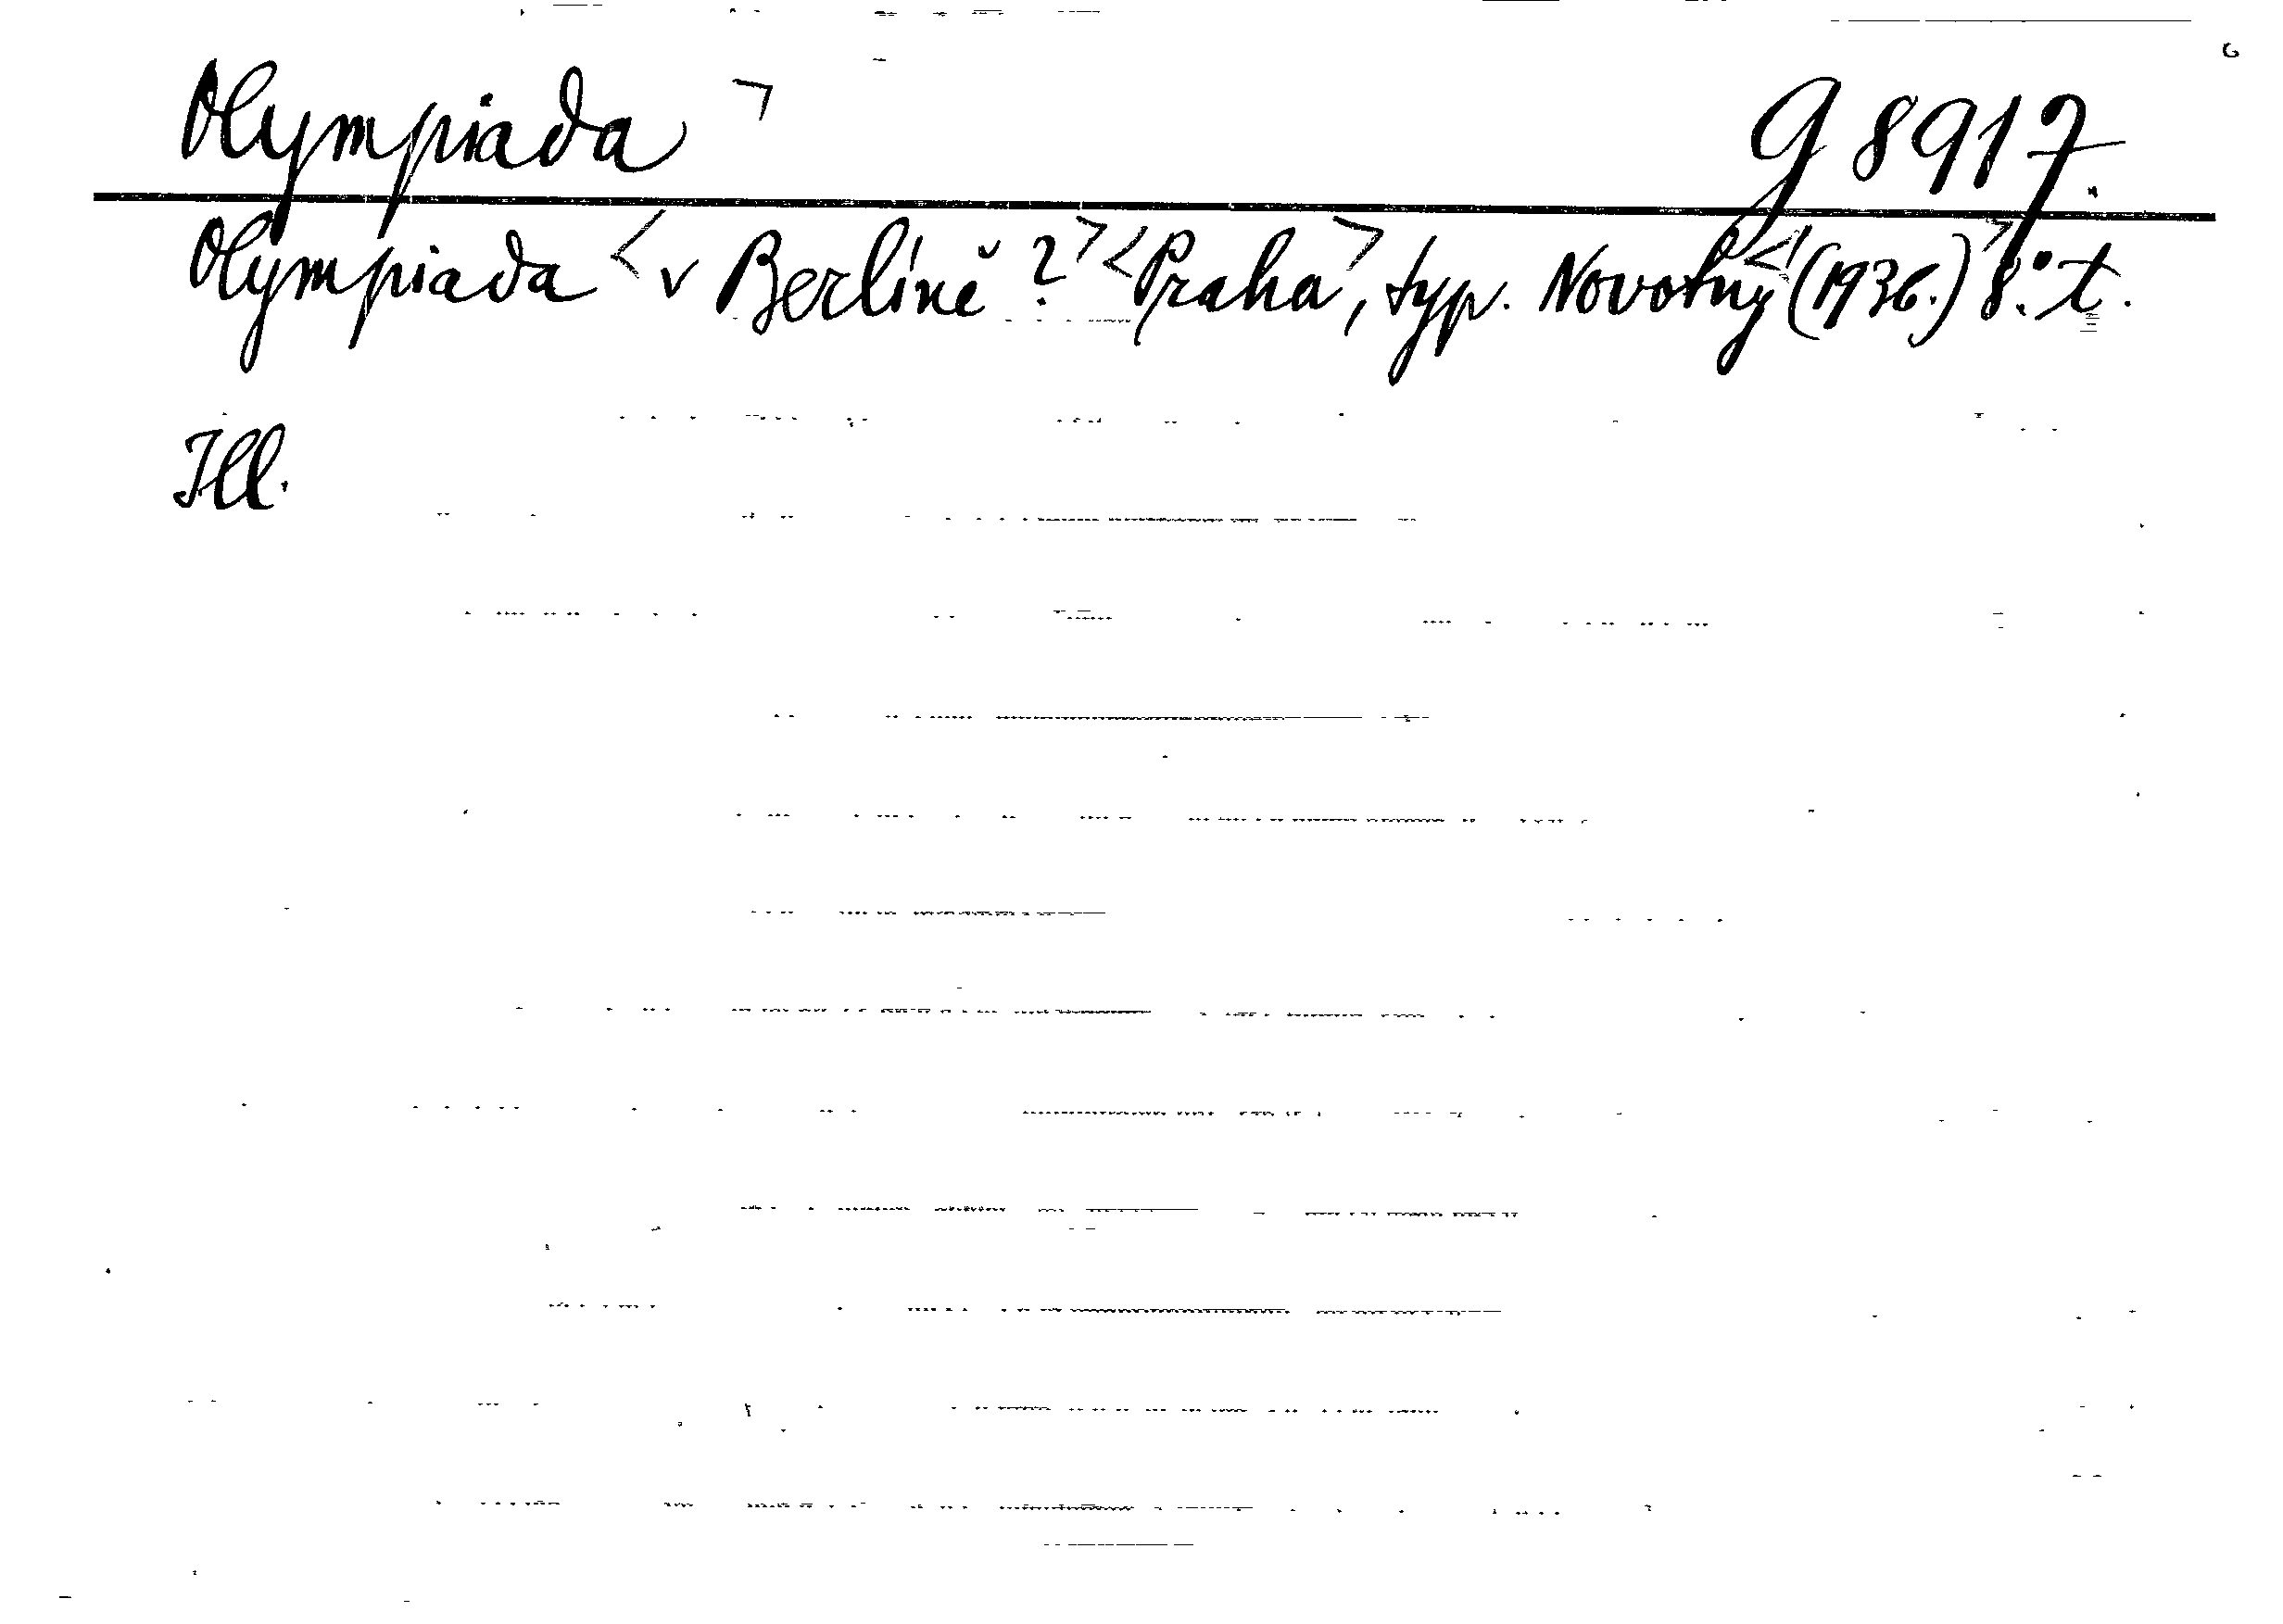 Olympiada ⟩ g 8917.
Olympiada <v Berlíně?> <Praha>, typ. Novotný <(1936.)> 8.° t.
Ill.